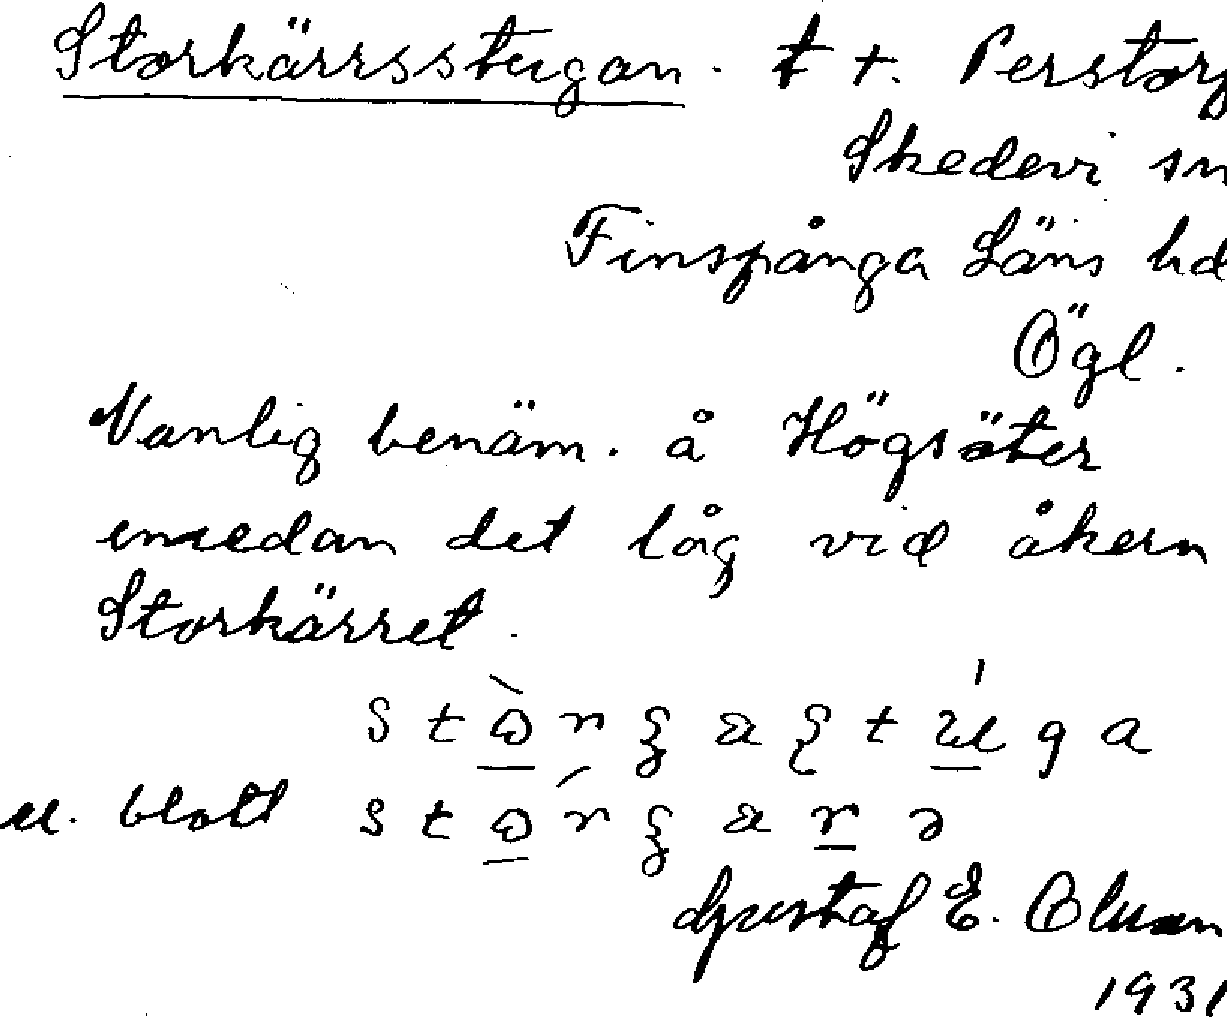 Storkärrsstugan. t t. Perstorp
Skedevi sn
Finspånga Läns hd
Ögl.
Vanlig benäm. å Högsäter
emedan det låg vid åkern
Storkärret.
u. blott
Gustaf E. Olsson
1931